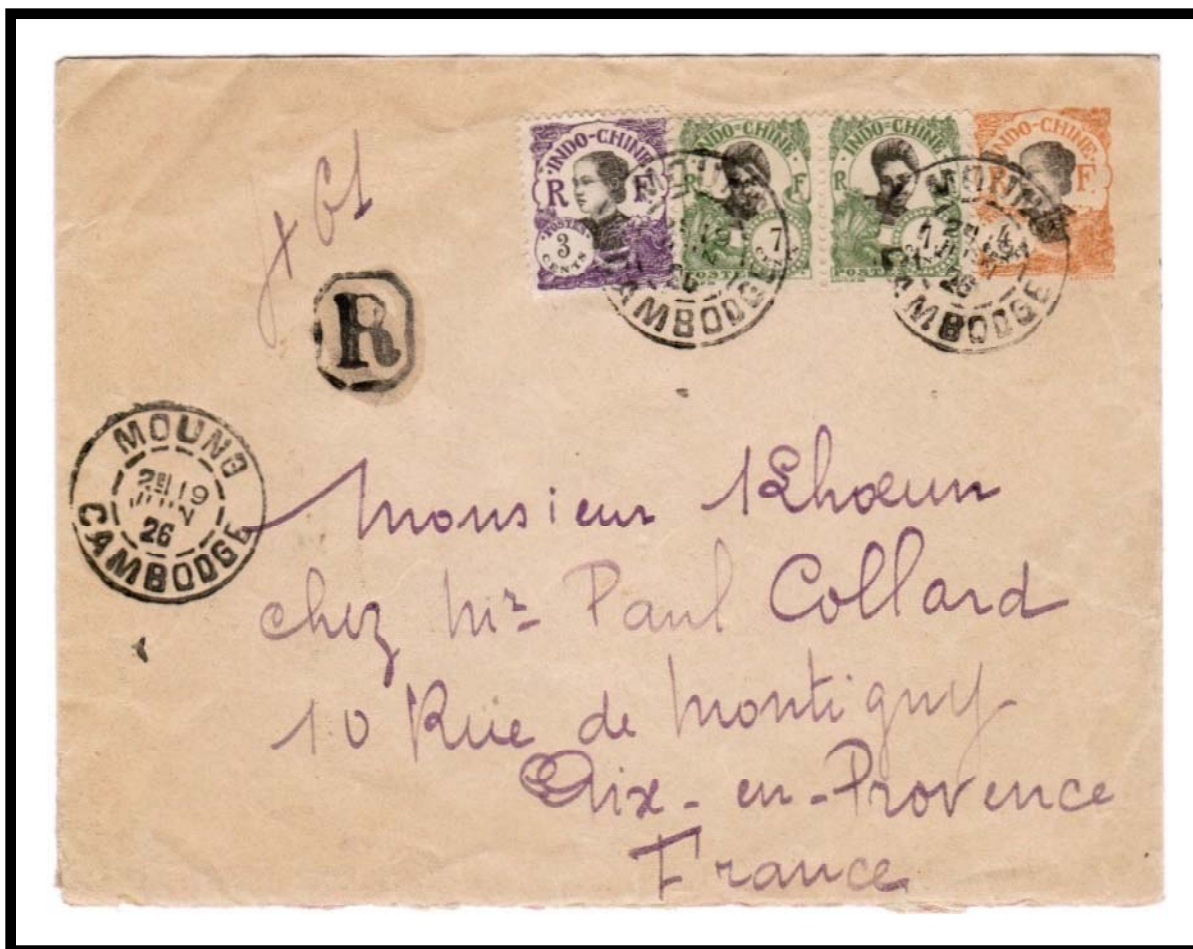 INDO-CHINE
R F
POSTES
3
CENTS
INDO-CHINE
R F
7
CENTS
POSTES
INDO-CHINE
R
7
POSTES
INDO-CHINE
R F
4
CAMBODGE
26
CAMBODGE
26
R
MOUNG
2E 19
26
CAMBODGE
Monsieur Khœun
chez Mr Paul Collard
10 Rue de Montigny
Aix-en-Provence
France